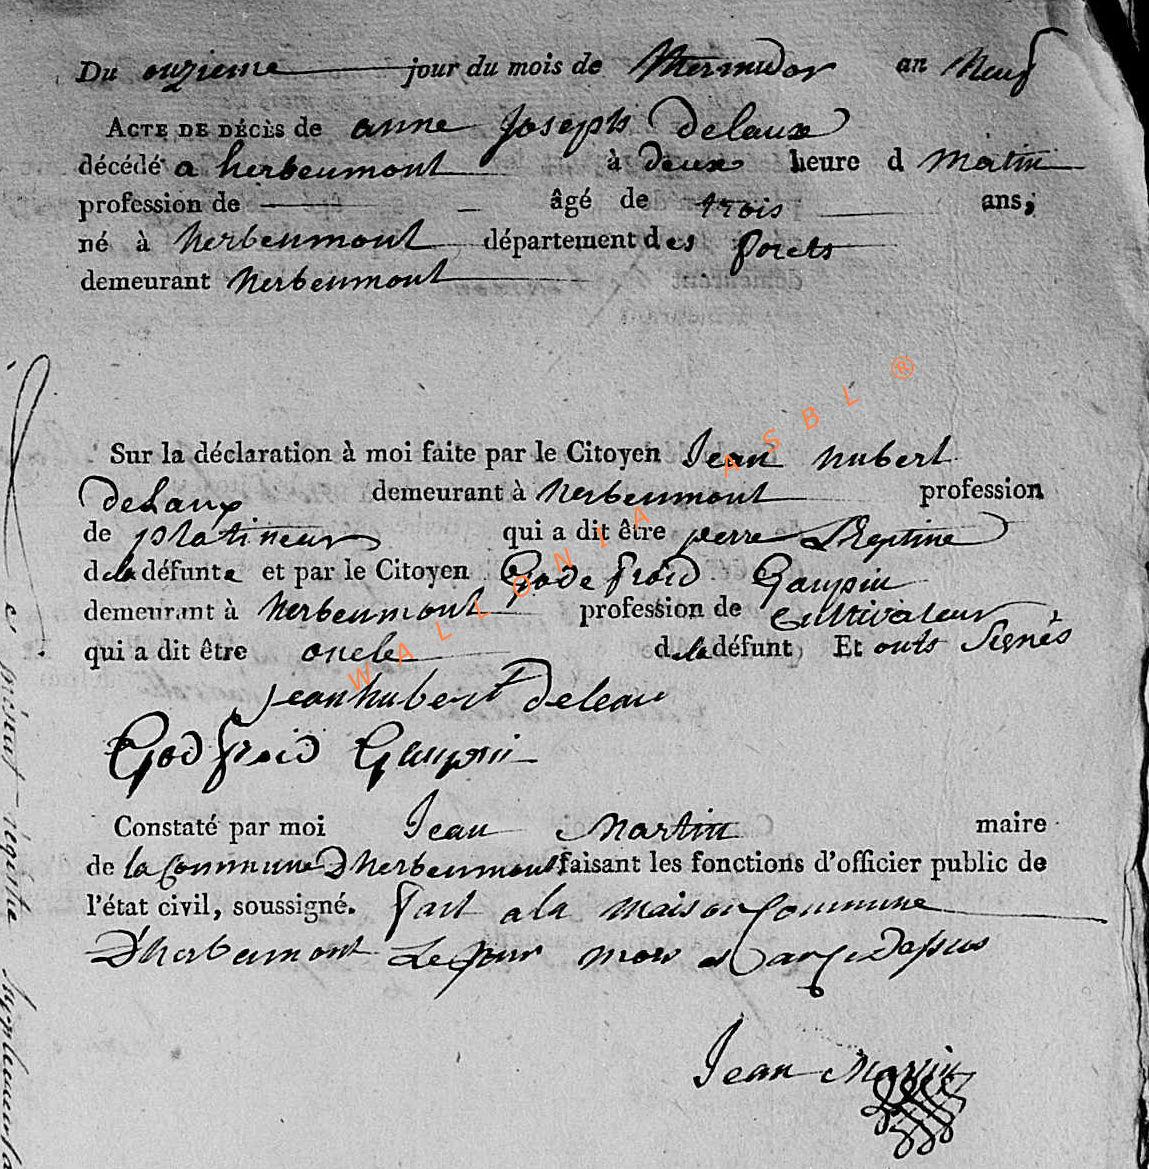 Du onzieme jour du mois de Thermidor an Neuf
ACTE DE DÉCÈS de anne Joseph Delaux
décédé a herbeumont à deux heure d Matin
profession de âgé de trois ans;
né à herbeumont département des forets
demeurant herbeumont
Sur la déclaration à moi faite par le Citoyen Jean hubert
Delaux demeurant à herbeumont profession
de platineur qui a dit être perre
de la défunte et par le Citoyen Gode froid Gaupin
demeurant à herbeumont profession de Cultivateur
qui a dit être oncle de la défunt Et onts Signés
jean hubert Deleau
God froid Gaupin
Constaté par moi Jean Martin maire
de la Commune D'herbeumont faisant les fonctions d'officier public de
l'état civil, soussigné. fait a la maison Commune
D'herbeumont Le jour mois et an Dessus
Jean Martin
WALLONIA ASBL ®